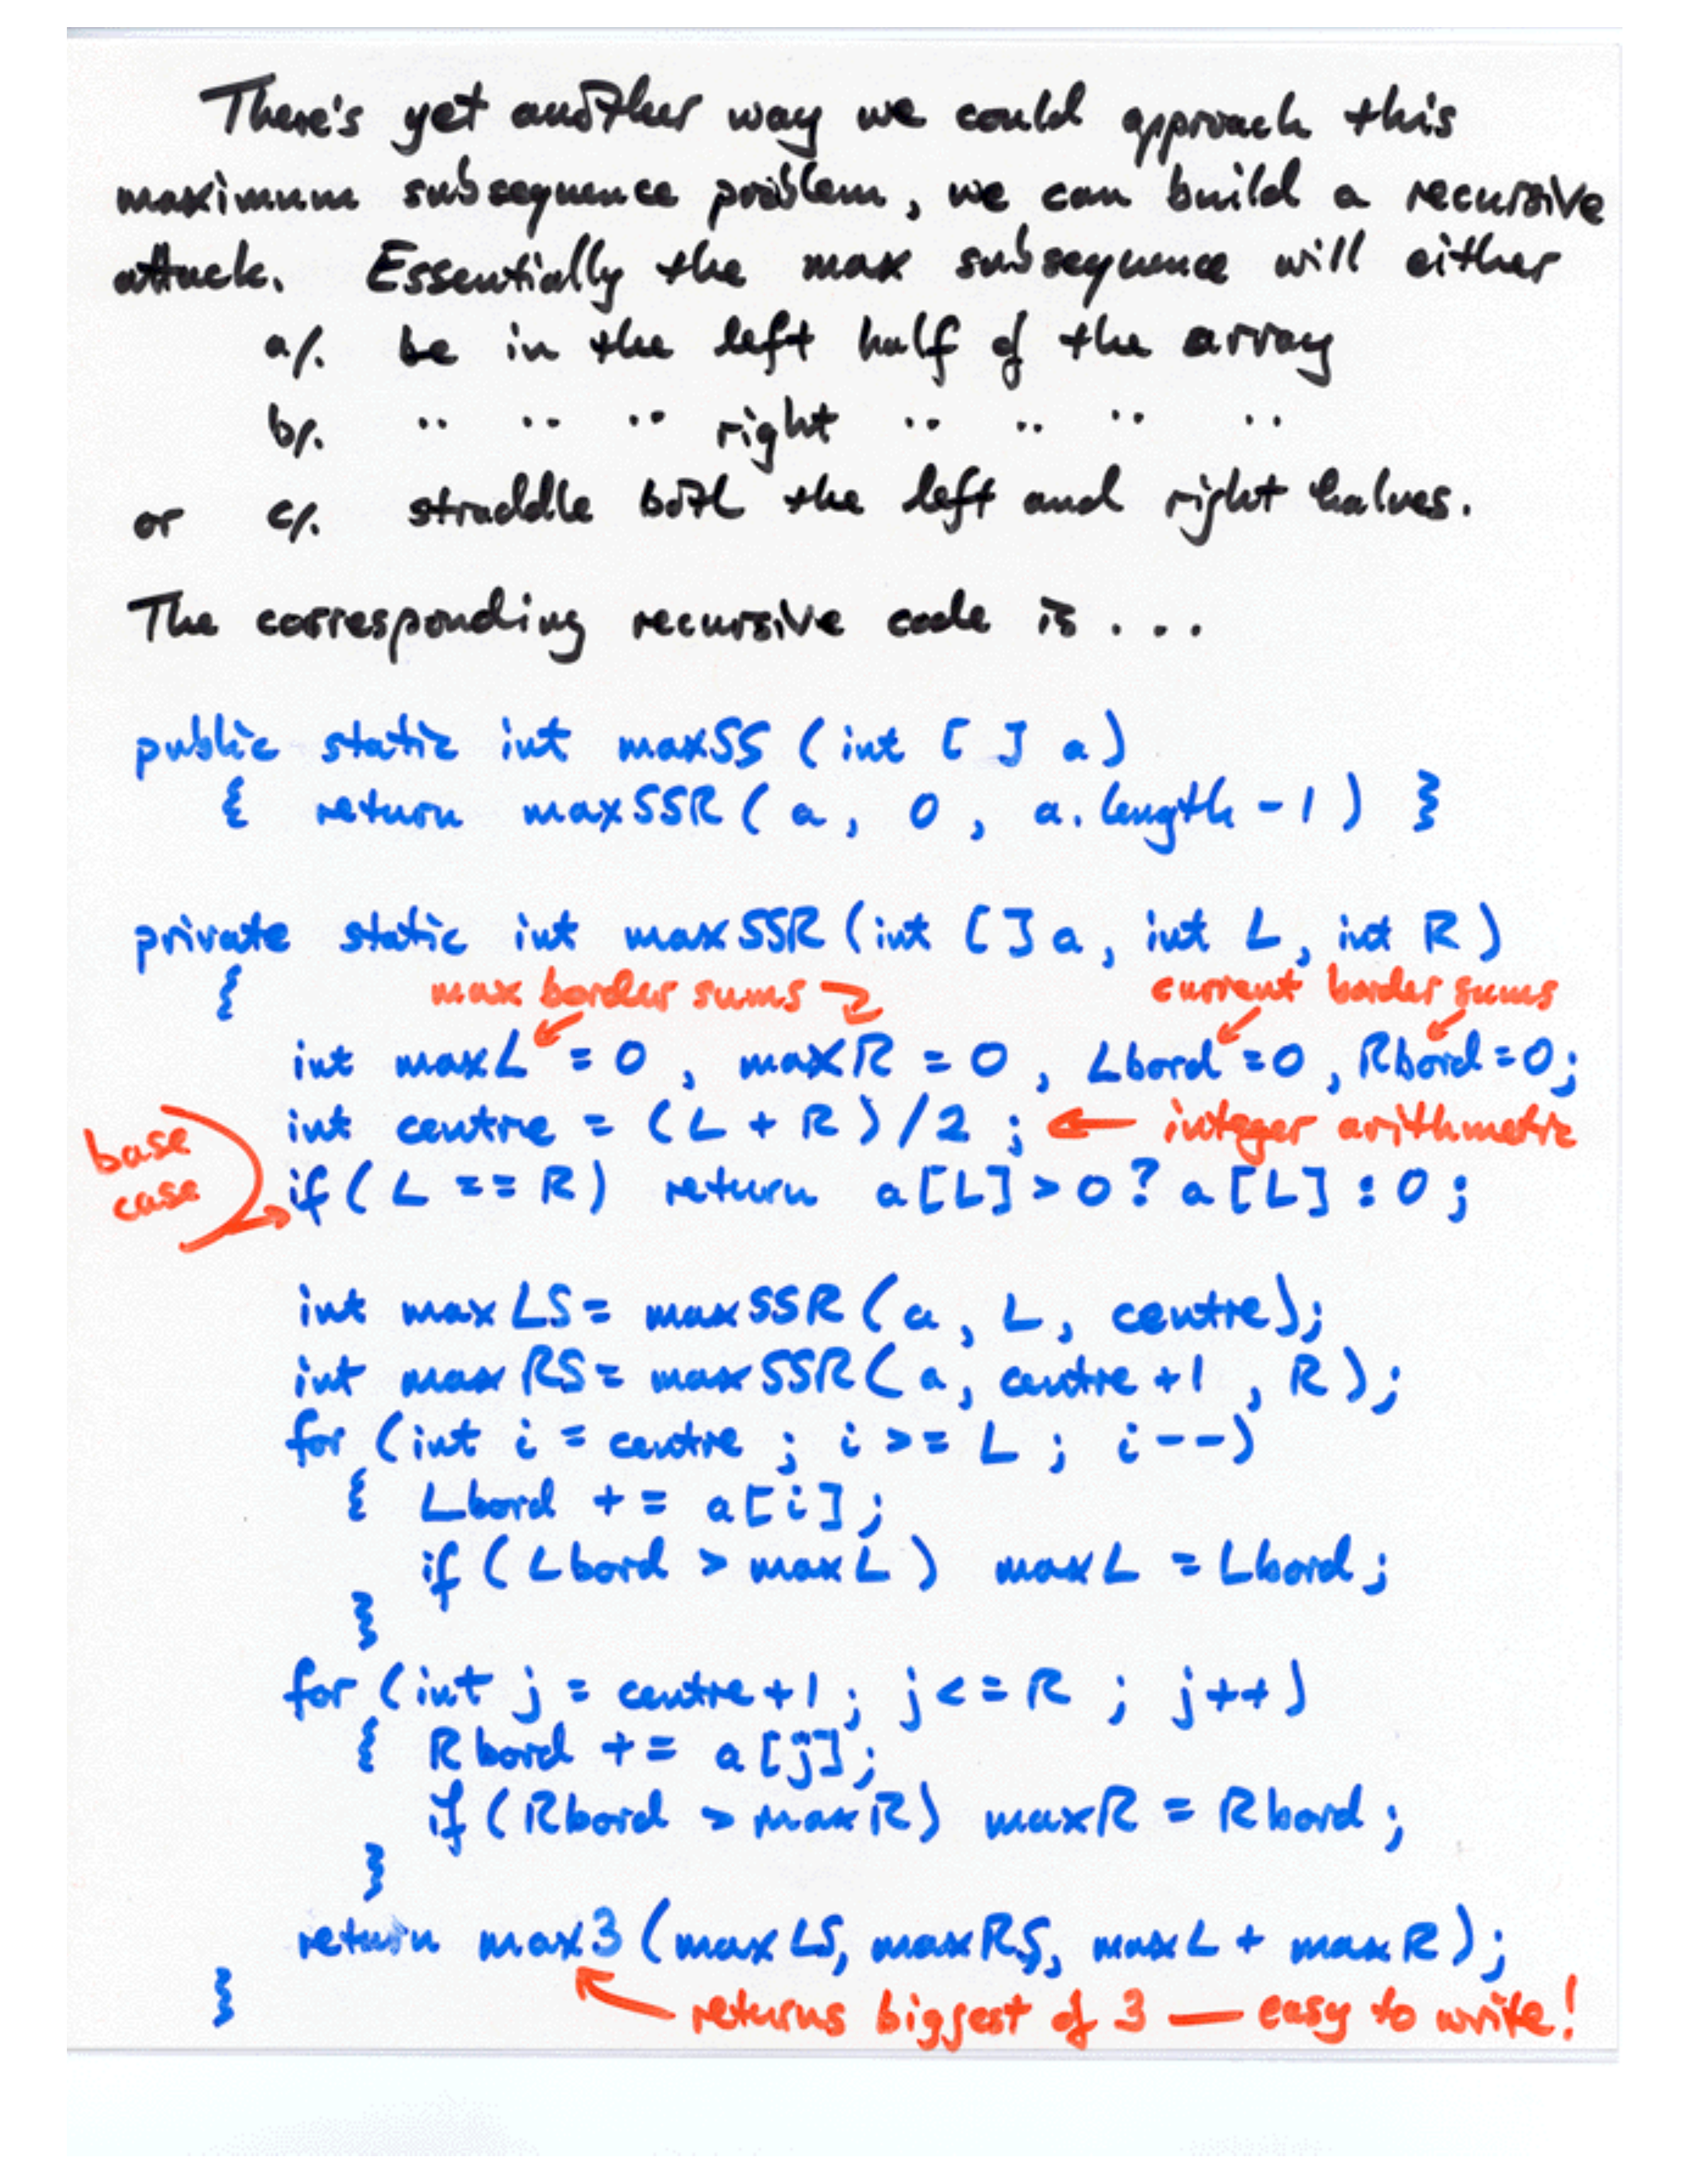 There's yet another way we could approach this
maximum subsequence problem, we can build a recursive
attack. Essentially the max subsequence will either
a/. be in the left half of the array
b/. " " " right " " " "
or c/. straddle both the left and right halves.
The corresponding recursive code is ...
public static int maxSS (int [ ] a)
{ return maxSSR ( a , 0 , a.length - 1 ) }
private static int maxSSR (int [ ] a , int L , int R )
{ max border sums current border sums
int maxL = 0 , maxR = 0 , Lbord = 0 , Rbord = 0 ;
int centre = ( L + R ) / 2 ; ← integer arithmetic
base case
if ( L == R ) return a [L] > 0 ? a [L] : 0 ;
int maxLS = maxSSR ( a , L , centre ) ;
int maxRS = maxSSR ( a , centre + 1 , R ) ;
for ( int i = centre ; i >= L ; i -- )
{ Lbord += a [ i ] ;
if ( Lbord > maxL ) maxL = Lbord ;
}
for ( int j = centre + 1 ; j <= R ; j ++ )
{ Rbord += a [ j ] ;
if ( Rbord > maxR ) maxR = Rbord ;
}
return max3 ( maxLS, maxRS, maxL + maxR ) ;
} returns biggest of 3 — easy to write!